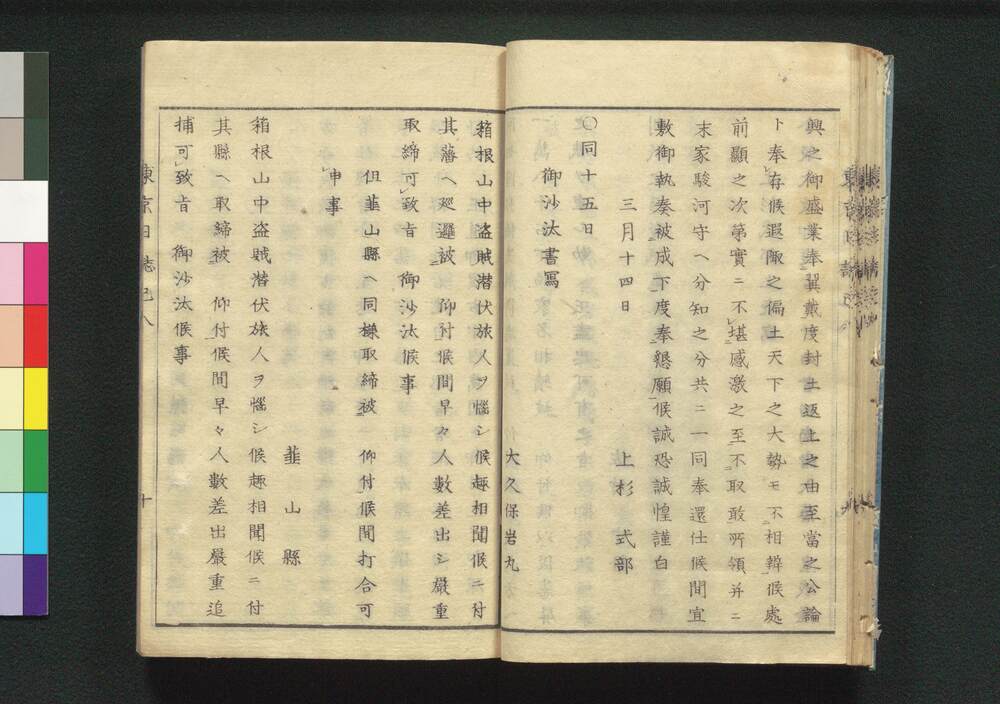 興之御盛業奉翼戴度封土返上之由至當之公論
ト奉存候遐陬之偏土天下之大勢モ不相辨候處
前顯之次第實ニ不堪感激之至不取敢所領并ニ
末家駿河守ヘ分知之分共ニ一同奉還仕候間宜
敷御執奏被成下度奉懇願候誠恐誠惶謹白
三月十四日　上杉式部
〇同十五日
御沙汰書寫
大久保岩丸
箱根山中盗賊潜伏旅人ヲ惱シ候趣相聞候ニ付
其藩ヘ廵邏被　仰付候間早々人數差出シ嚴重
取締可致旨　御沙汰候事
但韮山縣ヘ同様取締被　仰付候間打合可
申事
韮山縣
箱根山中盗賊潜伏旅人ヲ惱シ候趣相聞候ニ付
其縣ヘ取締被　仰付候間早々人數差出嚴重追
捕可致旨　御沙汰候事
東京日誌己八　十